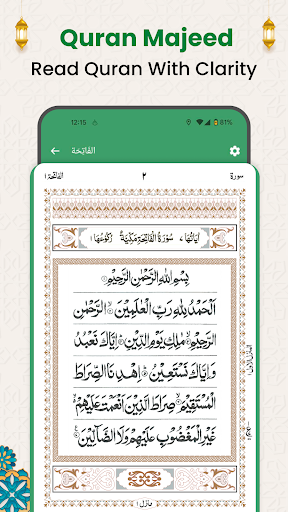 Quran Majeed
Read Quran With Clarity
12:15 81%
الفاتحة
الفاتحة ١ ٢ سورة
اٰیَاتُهَا ٧ سُوْرَةُ الْفَاتِحَةِ مَكِّيَّةٌ رُكُوْعُهَا ١
بِسْمِ اللّٰهِ الرَّحْمٰنِ الرَّحِيْمِ
اَلْحَمْدُ لِلّٰهِ رَبِّ الْعٰلَمِيْنَ ۙ الرَّحْمٰنِ
الرَّحِيْمِ ۙ مٰلِكِ يَوْمِ الدِّيْنِ ؕ اِيَّاكَ نَعْبُدُ
وَاِيَّاكَ نَسْتَعِيْنُ ؕ اِهْدِنَا الصِّرَاطَ
الْمُسْتَقِيْمَ ۙ صِرَاطَ الَّذِيْنَ اَنْعَمْتَ عَلَيْهِمْ
غَيْرِ الْمَغْضُوْبِ عَلَيْهِمْ وَلَا الضَّآلِّيْنَ
منزل ١